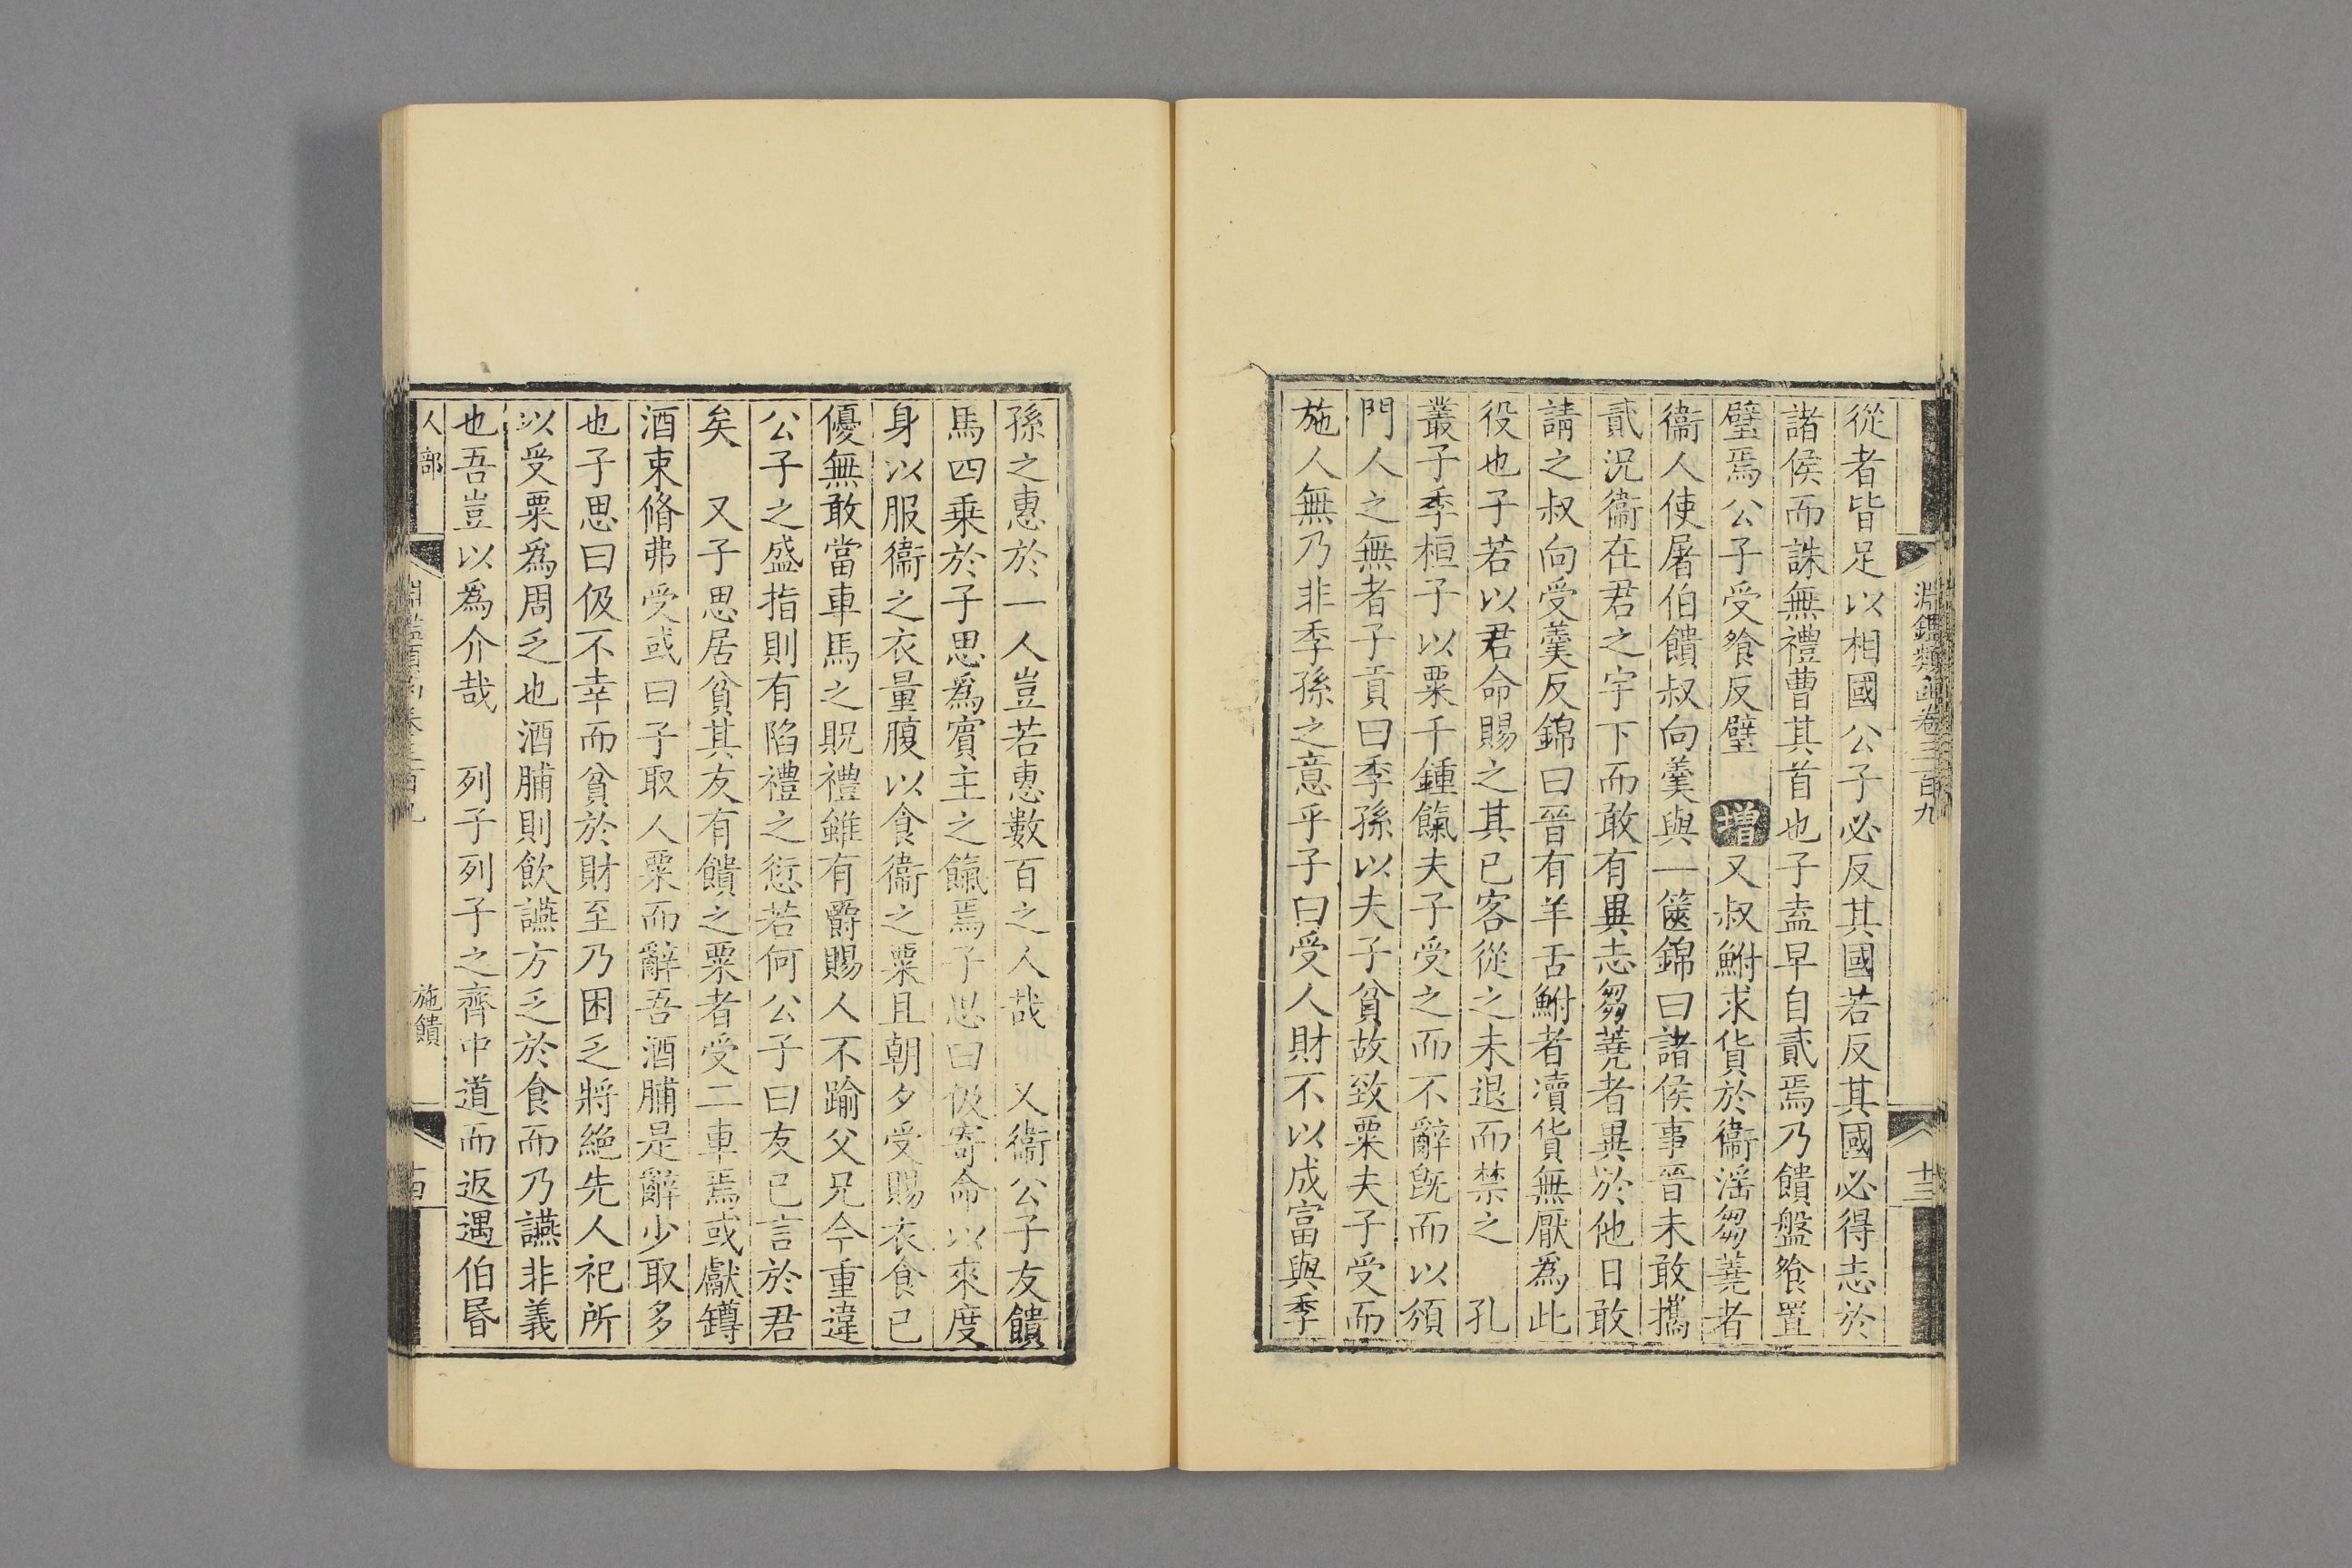 淵鑑類函卷三百九
廿三
從者皆足以相國公子必反其國若反其國必得志於
諸侯而誅無禮曹其首也子盍早自貳焉乃饋盤飱置
璧焉公子受飱反璧　增又叔鮒求貨於衞淫芻蕘者
衞人使屠伯饋叔向羹與一篋錦曰諸侯事晉未敢攜
貳況衞在君之宇下而敢有異志芻蕘者異於他日敢
請之叔向受羹反錦曰晉有羊舌鮒者瀆貨無厭爲此
役也子若以君命賜之其已客從之未退而禁之　孔
叢子季桓子以粟千鍾餼夫子受之而不辭旣而以頒
門人之無者子貢曰季孫以夫子貧故致粟夫子受而
施人無乃非季孫之意乎子曰受人財不以成富與季
孫之惠於一人豈若惠數百之人哉　又衞公子友饋
馬四乗於子思爲賓主之餼焉子思曰伋寄命以來度
身以服衞之衣量腹以食衞之粟且朝夕受賜衣食已
優無敢當車馬之貺禮雖有爵賜人不踰父兄今重違
公子之盛指則有陷禮之愆若何公子曰友已言於君
矣　又子思居貧其友有饋之粟者受二車焉或獻罇
酒束脩弗受或曰子取人粟而辭吾酒脯是辭少取多
也子思曰伋不幸而貧於財至乃困乏將絕先人祀所
以受粟爲周乏也酒脯則飲讌方乏於食而乃讌非義
也吾豈以爲介哉　列子列子之齊中道而返遇伯昬
人部
淵鑑類函卷三百九
施饋